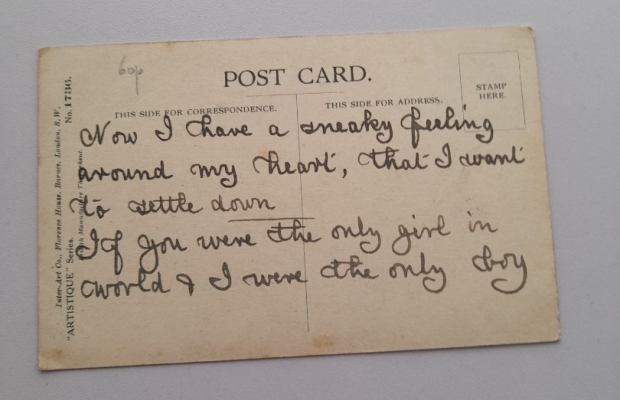 60p
POST CARD.
STAMP
HERE.
THIS SIDE FOR CORRESPONDENCE.
THIS SIDE FOR ADDRESS.
Now I have a sneaky feeling
around my heart, that I want
to settle down
If you were the only girl in
world & I were the only boy
Inter-Art Co., Florence House, Barnes, London, S.W.
"ARTISTIQUE" Series. No. 1736.